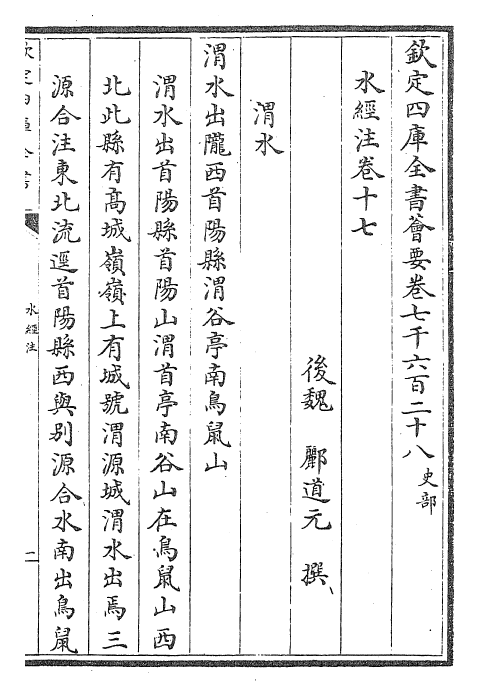 欽定四庫全書薈要卷七千六百二十八 史部
水經注卷十七
後魏 酈道元 撰
渭水
渭水出隴西首陽縣渭谷亭南鳥鼠山
渭水出首陽縣首陽山渭首亭南谷山在鳥鼠山西
北此縣有高城嶺嶺上有城號渭源城渭水出焉三
源合注東北流逕首陽縣西與别源合水南出鳥鼠
水經注